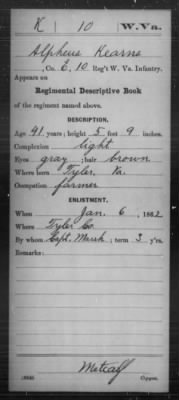 K | 10 | W.Va.
Alpheus Kearns
, Co. E, 10 Reg't W. Va. Infantry.
Appears on
Regimental Descriptive Book
of the regiment named above.
DESCRIPTION.
Age 41 years; height 5 feet 9 inches.
Complexion light
Eyes gray; hair brown
Where born Tyler, Va.
Occupation farmer
ENLISTMENT.
When Jan. 6, 1862
Where Tyler Co.
By whom Capt. Marsh; term 3 y'rs.
Remarks:
Metcalf
Copyist.